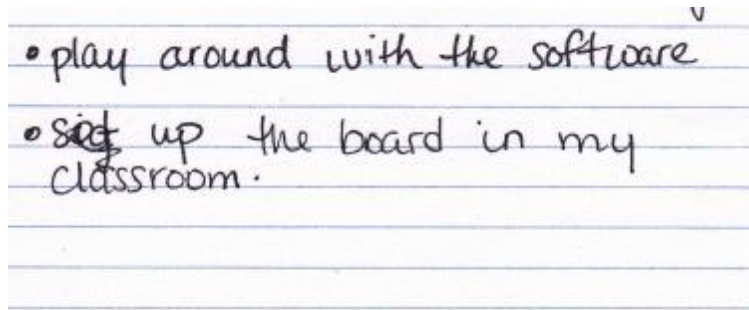 • play around with the software
• set up the board in my
classroom.